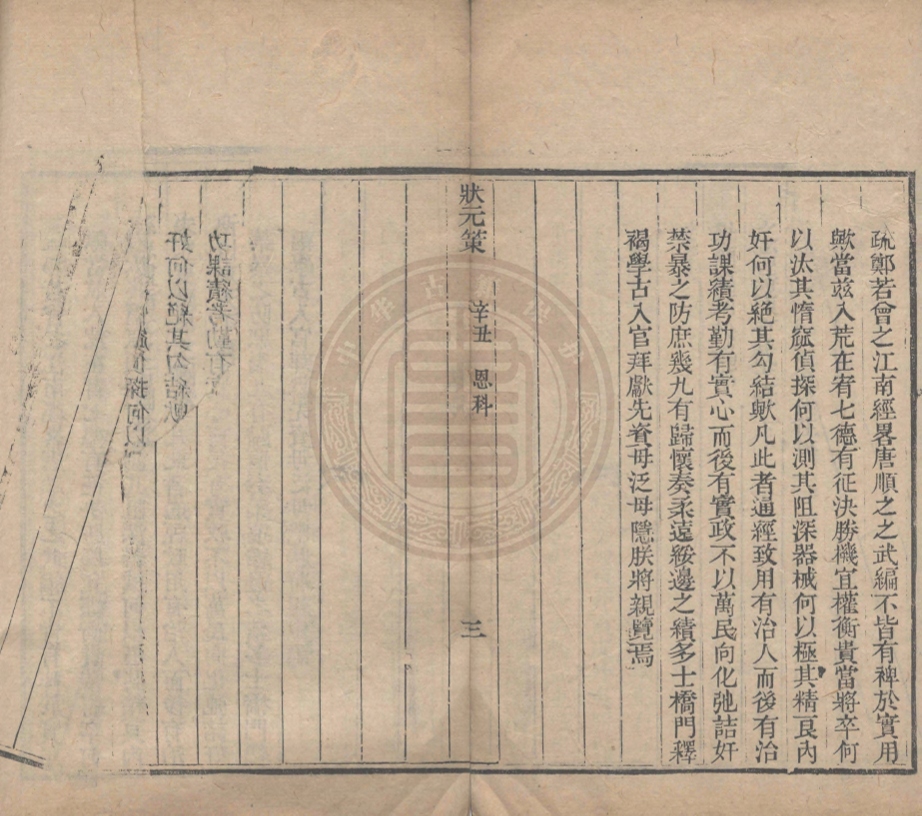 疏鄭若曾之江南經畧唐順之之武編不皆有裨於實用
歟當兹八荒在宥七德有征決勝機宜權衡貴當將卒何
以汰其惰窳偵探何以測其阻深器械何以極其精良內
奸何以絕其勾結歟凡此者通經致用有治人而後有治
功課績考勤有實心而後有實政不以萬民向化弛詰奸
禁暴之防庶幾九有歸懷奏柔遠綏邊之績多士橋門釋
褐學古入官拜獻先資毋泛毋隱朕將親覽焉
狀元策 辛丑 恩科 三
功課績考勤有
奸何以絕其勾結歟
偵探何以